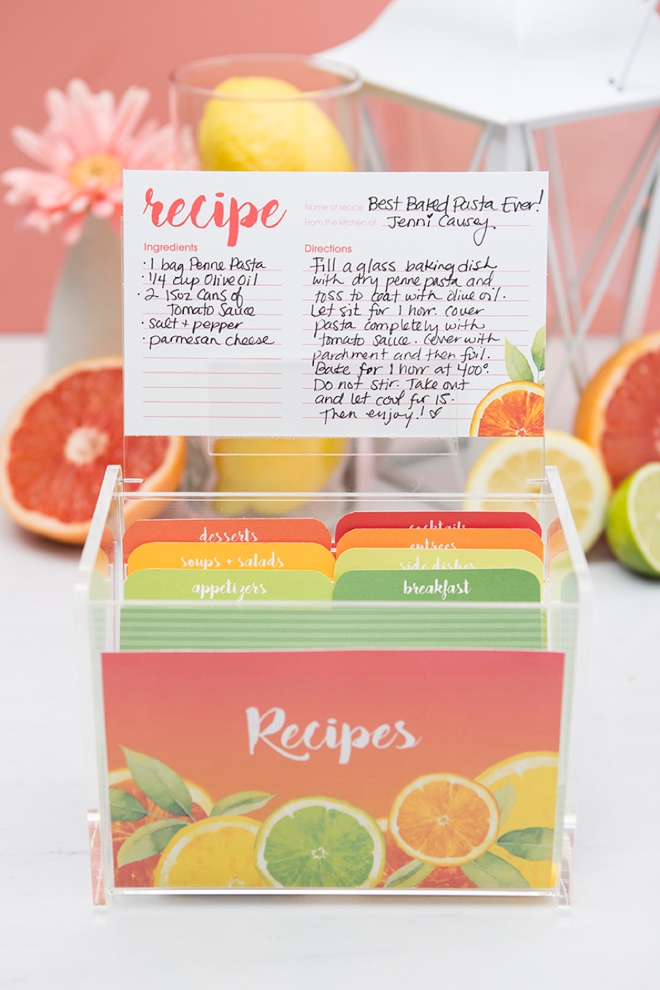 recipe
Name of recipe Best Baked Pasta Ever!
From the kitchen of Jenni Causey
Ingredients
· 1 bag Penne Pasta
· 1/4 cup Olive Oil
· 2 15oz Cans of
Tomato Sauce
· salt + pepper
· parmesan cheese
Directions
Fill a glass baking dish
with dry penne pasta and
toss to coat with olive oil.
Let sit for 1 hour. cover
pasta completely with
tomato sauce. Cover with
parchment and then foil.
Bake for 1 hour at 400°.
Do not stir. Take out
and let cool for 15.
Then enjoy!
desserts
cocktails
soups + salads
entrees
side dishes
appetizers
breakfast
Recipes